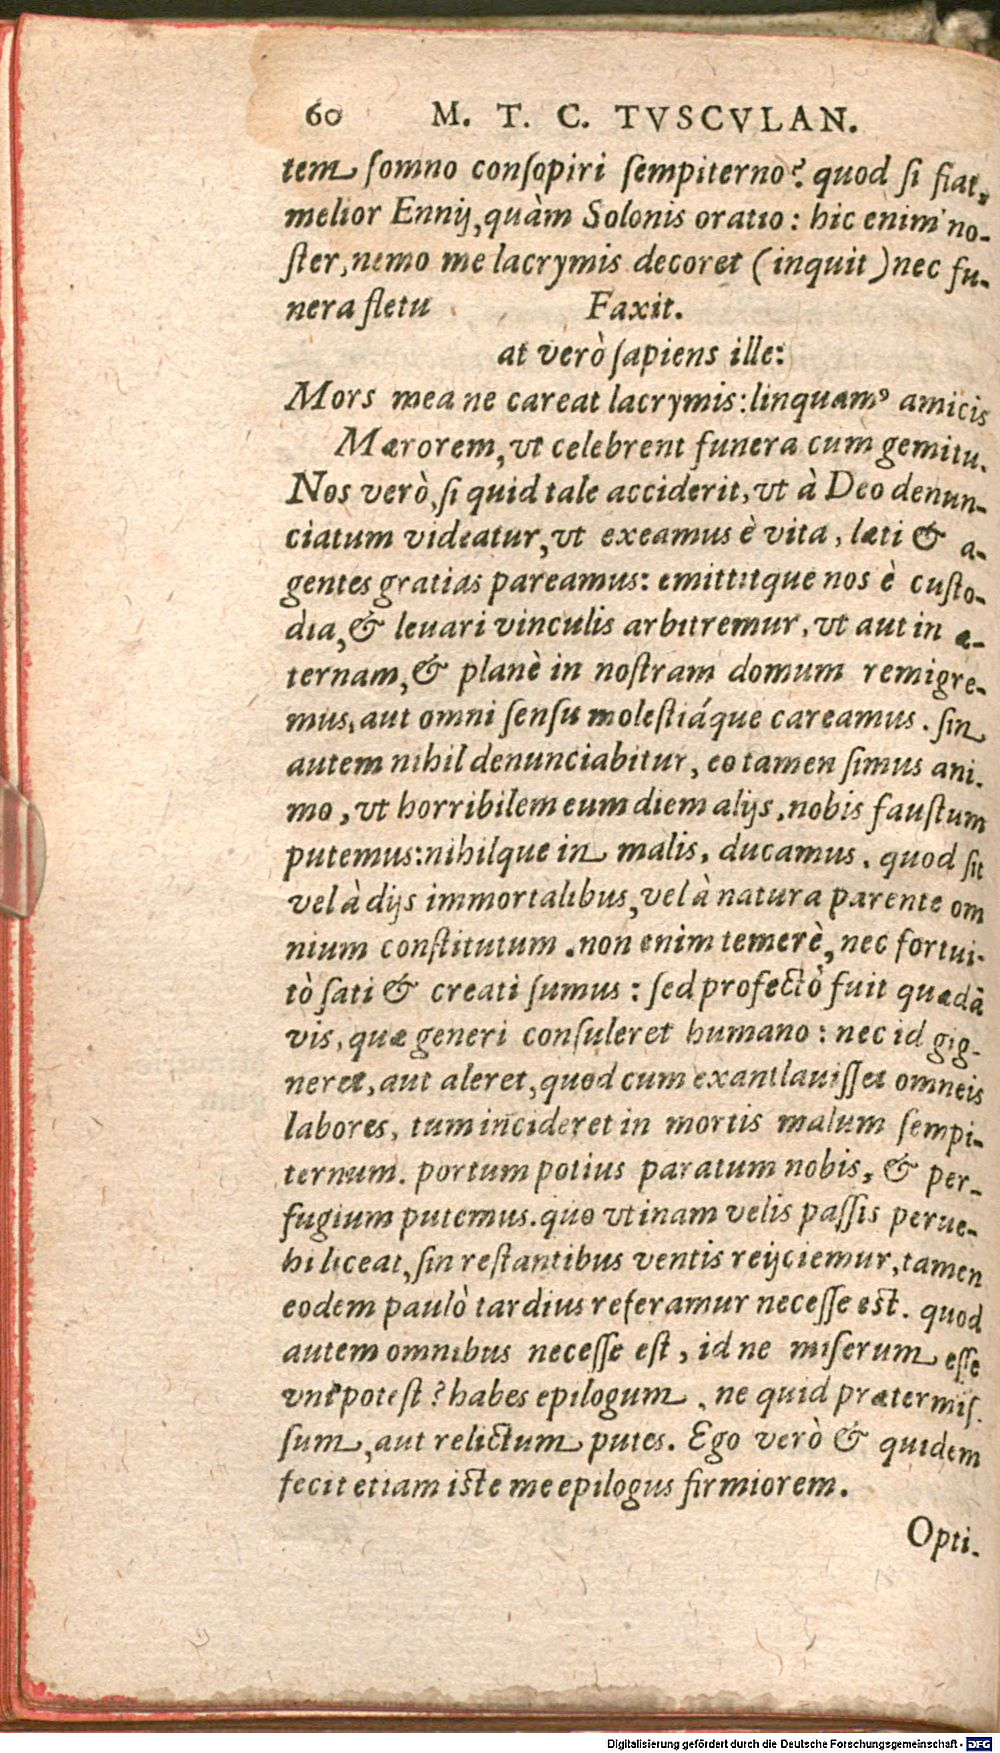 60 M. T. C. TVSCVLAN.
tem somno consopiri sempiterno? quod si fiat,
melior Ennij, quàm Solonis oratio: hic enim no-
ster, nemo me lacrymis decoret (inquit) nec fu-
nera fletu Faxit.
at verò sapiens ille:
Mors mea ne careat lacrymis: linquamꝰ amicis
Mærorem, vt celebrent funera cum gemitu.
Nos verò, si quid tale acciderit, vt à Deo denun-
ciatum videatur, vt exeamus è vita, læti & a-
gentes gratias pareamus: emittitque nos è custo-
dia, & leuari vinculis arbitremur, vt aut in æ-
ternam, & planè in nostram domum remigre-
mus, aut omni sensu molestiáque careamus. sin
autem nihil denunciabitur, eo tamen simus ani-
mo, vt horribilem eum diem alijs, nobis faustum
putemus: nihilque in malis, ducamus, quod sit
vel à dijs immortalibus, vel à natura parente om
nium constitutum. non enim temerè, nec fortui-
tò sati & creati sumus: sed profectò fuit quædã
vis, quæ generi consuleret humano: nec id gig-
neret, aut aleret, quod cum exantlauisset omneis
labores, tum incideret in mortis malum sempi-
ternum. portum potius paratum nobis, & per-
fugium putemus. quo vtinam velis passis perue-
hi liceat, sin restantibus ventis reijciemur, tamen
eodem paulò tardius referamur necesse est. quod
autem omnibus necesse est, id ne miserum esse
vni potest? habes epilogum, ne quid prætermis-
sum, aut relictum putes. Ego verò & quidem
fecit etiam iste me epilogus firmiorem.
Opti-
Digitalisierung gefördert durch die Deutsche Forschungsgemeinschaft - DFG